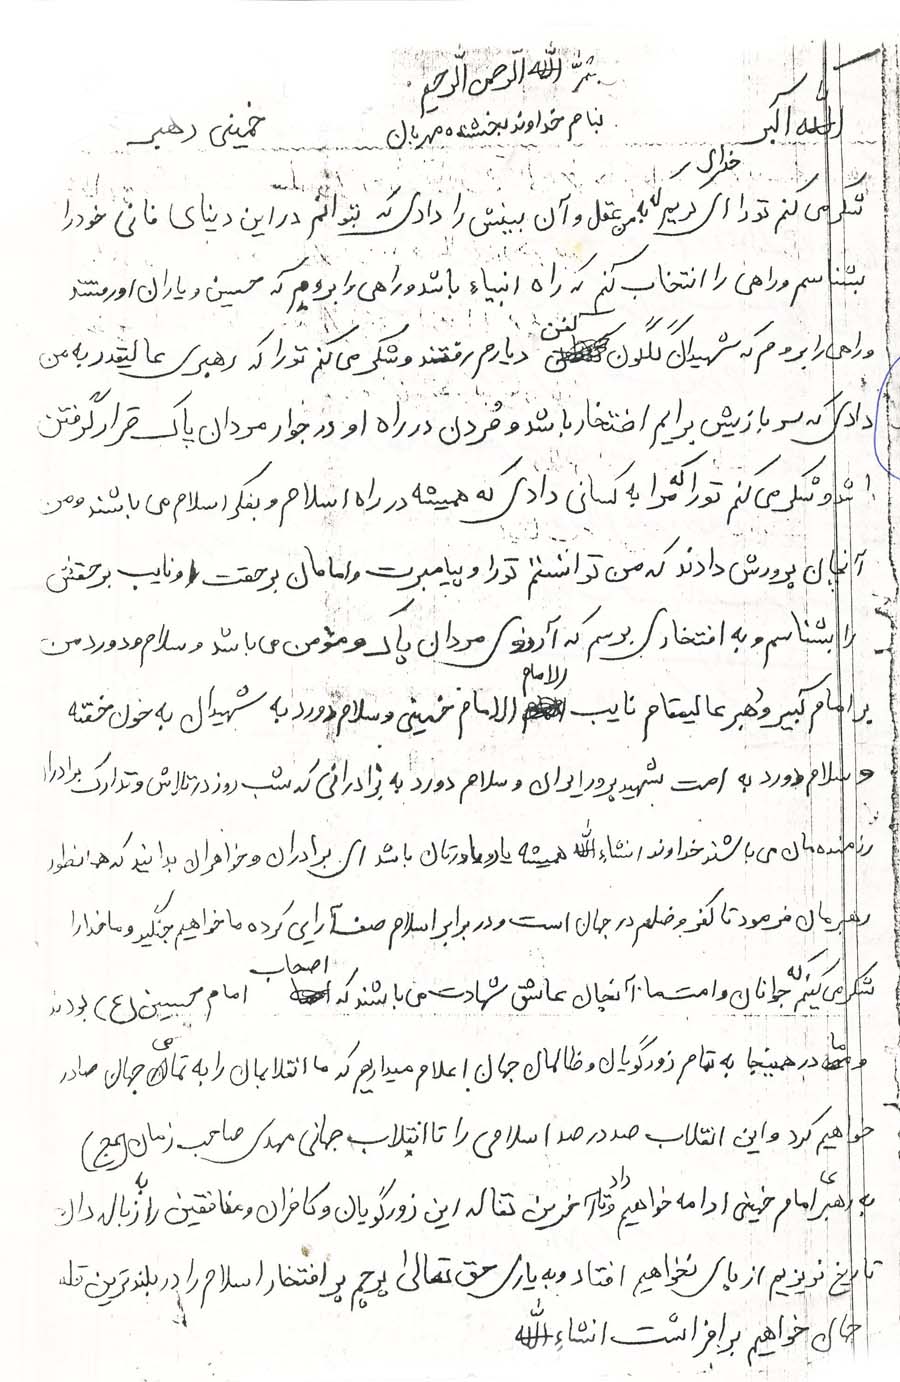 بسم الله الرحمن الرحیم
الله اکبر بنام خداوند بخشنده مهربان خمینی رهبر
شکر می کنم تو را ای خدای که به من عقل و آن بینش را دادی که بتوانم در این دنیای فانی خود را
بشناسم و راهی را انتخاب کنم که راه انبیاء باشد و راهی را بروم که حسین و یاران او رفتند
و راهی را بروم که شهیدان گلگون کفن دیارم رفتند و شکر می کنم تو را که رهبری عالیقدر به من
دادی که سربازیش برایم افتخار باشد و مُردن در راه او در جوار مردان پاک قرار گرفتن
باشد و شکر می کنم تو را که مرا به کسانی دادی که همیشه در راه اسلام و بفکر اسلام می باشند و من
آنچنان پرورش دادند که من توانستم تو را و پیامبرت و امامان برحقت و نایب برحقش
را بشناسم و به افتخاری برسم که آرزوی مردان پاک و مؤمن می باشد و سلام و درود من
بر امام کبیر و رهبر عالیمقام نایب الامام الامام خمینی و سلام و درود به شهیدان به خون خفته
و سلام و درود به امت شهید پرور ایران و سلام و درود به برادرانی که شب روز در تلاش و تدارک برادران
رزمنده مان می باشند خداوند انشاءالله همیشه یار و یاورتان باشد ای برادران و خواهران بدانید که همانطور
رهبرمان فرمود تا کفر و ضلم در جهان است و در برابر اسلام صف آرایی کرده ما خواهیم جنگید و ما خدا را
شکر می کنیم که جوانان و امت ما آنچنان عاشق شهادت می باشند که اصحاب امام حسین (ع) بودند
و ما در همینجا به تمام زورگویان و ظالمان جهان اعلام میداریم که ما انقلابمان را به تمامی جهان صادر
خواهیم کرد و این انقلاب صد در صد اسلامی را تا انقلاب جهانی مهدی صاحب زمان (عج)
به رهبری امام خمینی ادامه خواهیم داد و تا آخرین تفاله این زورگویان و کافران و منافقین را به زباله دان
تاریخ نریزیم از پای نخواهیم افتاد و به یاری حق تعالی پرچم پر افتخار اسلام را در بلندترین قله
جهان خواهیم برافراشت انشاءالله